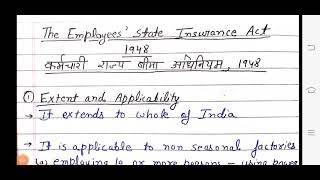 The Employees' State Insurance Act
1948
कर्मचारी राज्य बीमा अधिनियम, 1948
① Extent and Applicability
→ It extends to whole of India
→ It is applicable to non seasonal factories
(a) employing 10 or more persons - using power